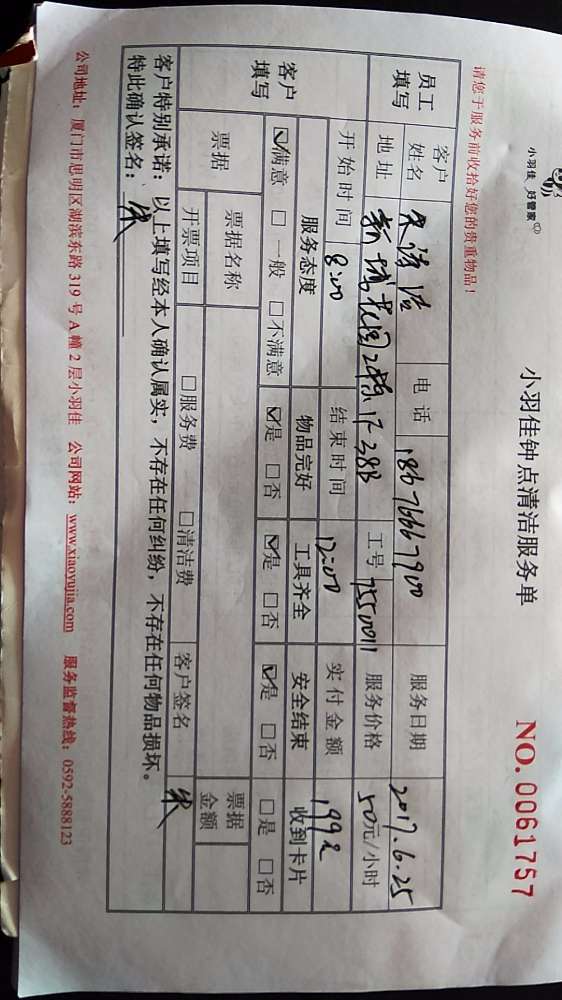 小羽佳 好管家
小羽佳钟点清洁服务单
NO. 0061757
请您于服务前收拾好您的贵重物品！
员工填写
客户姓名 电话 18676667900 服务日期 2017.6.25
地址 新城花园2栋17-38B 工号 7550011 服务价格 50元/小时
开始时间 8:00 结束时间 12:00 实付金额 199.2
客户填写
服务态度 物品完好 工具齐全 安全结束 收到卡片
☑满意 □一般 □不满意 ☑是 □否 ☑是 □否 ☑是 □否 □是 □否
票据 票据名称 票据金额
开票项目 □服务费 □清洁费 客户签名 朱
客户特别承诺：以上填写经本人确认属实，不存在任何纠纷，不存在任何物品损坏。
特此确认签名：朱
公司地址：厦门市思明区湖滨东路 319 号 A 幢 2 层小羽佳 公司网站：www.xiaoyujia.com 服务监督热线：0592-5888123